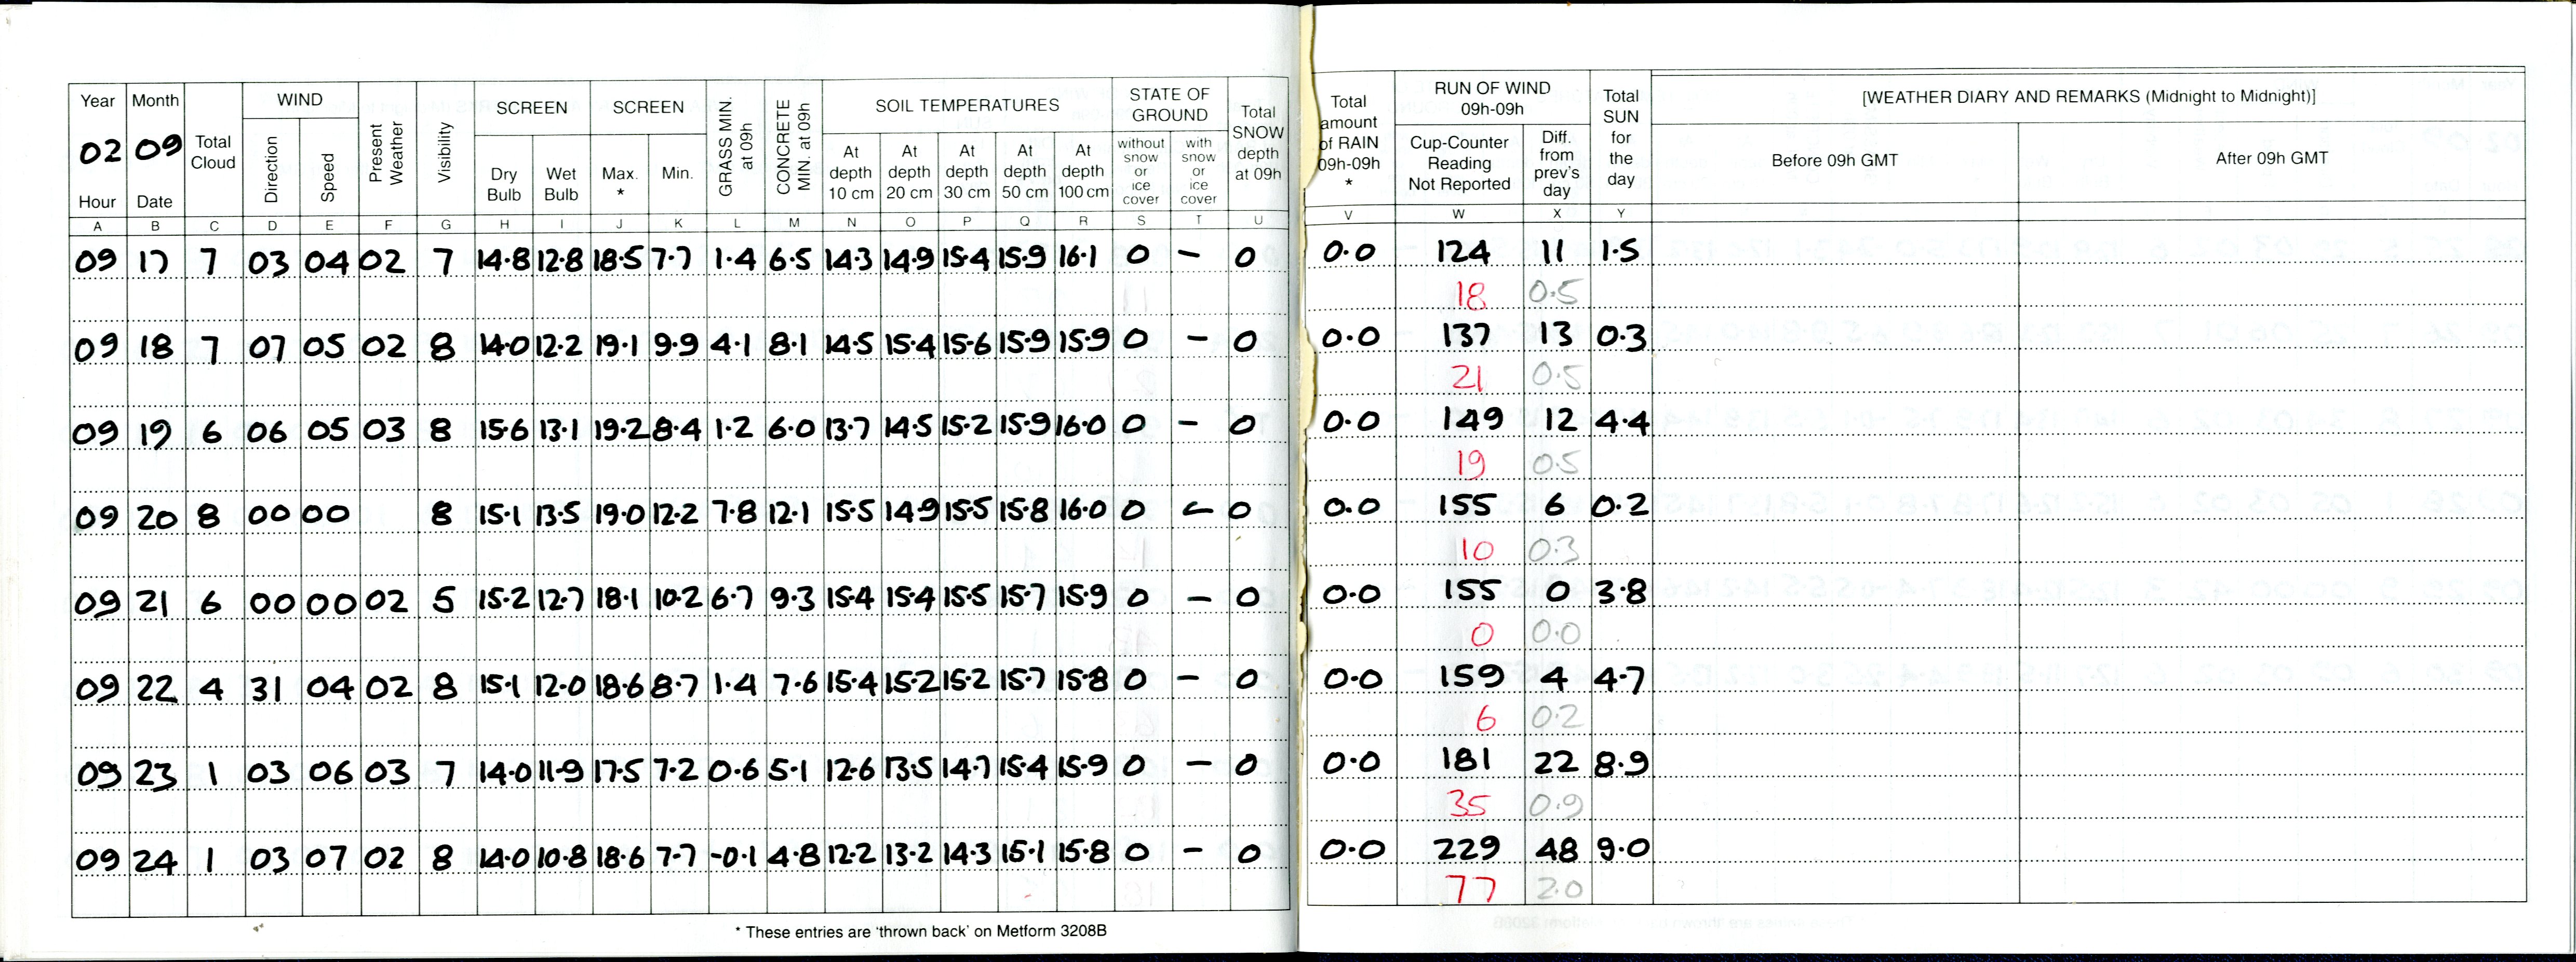 Year Month Total Cloud WIND Present Weather Visibility SCREEN SCREEN GRASS MIN. at 09h CONCRETE MIN. at 09h SOIL TEMPERATURES STATE OF GROUND Total SNOW depth at 09h Total amount of RAIN 09h-09h * RUN OF WIND 09h-09h Total SUN for the day [WEATHER DIARY AND REMARKS (Midnight to Midnight)]
02 09 Direction Speed Dry Bulb Wet Bulb Max. * Min. At depth 10 cm At depth 20 cm At depth 30 cm At depth 50 cm At depth 100 cm without snow or ice cover with snow or ice cover Cup-Counter Reading Not Reported Diff. from prev's day Before 09h GMT After 09h GMT
Hour Date
A B C D E F G H I J K L M N O P Q R S T U V W X Y
09 17 7 03 04 02 7 14.8 12.8 18.5 7.7 1.4 6.5 14.3 14.9 15.4 15.9 16.1 0 - 0 0.0 124 11 1.5
18 0.5
09 18 7 07 05 02 8 14.0 12.2 19.1 9.9 4.1 8.1 14.5 15.4 15.6 15.9 15.9 0 - 0 0.0 137 13 0.3
21 0.5
09 19 6 06 05 03 8 15.6 13.1 19.2 8.4 1.2 6.0 13.7 14.5 15.2 15.9 16.0 0 - 0 0.0 149 12 4.4
19 0.5
09 20 8 00 00 8 15.1 13.5 19.0 12.2 7.8 12.1 15.5 14.9 15.5 15.8 16.0 0 - 0 0.0 155 6 0.2
10 0.3
09 21 6 00 00 02 5 15.2 12.7 18.1 10.2 6.7 9.3 15.4 15.4 15.5 15.7 15.9 0 - 0 0.0 155 0 3.8
0 0.0
09 22 4 31 04 02 8 15.1 12.0 18.6 8.7 1.4 7.6 15.4 15.2 15.2 15.7 15.8 0 - 0 0.0 159 4 4.7
6 0.2
09 23 1 03 06 03 7 14.0 11.9 17.5 7.2 0.6 5.1 12.6 13.5 14.7 15.4 15.9 0 - 0 0.0 181 22 8.9
35 0.9
09 24 1 03 07 02 8 14.0 10.8 18.6 7.7 -0.1 4.8 12.2 13.2 14.3 15.1 15.8 0 - 0 0.0 229 48 9.0
77 2.0
* These entries are 'thrown back' on Metform 3208B